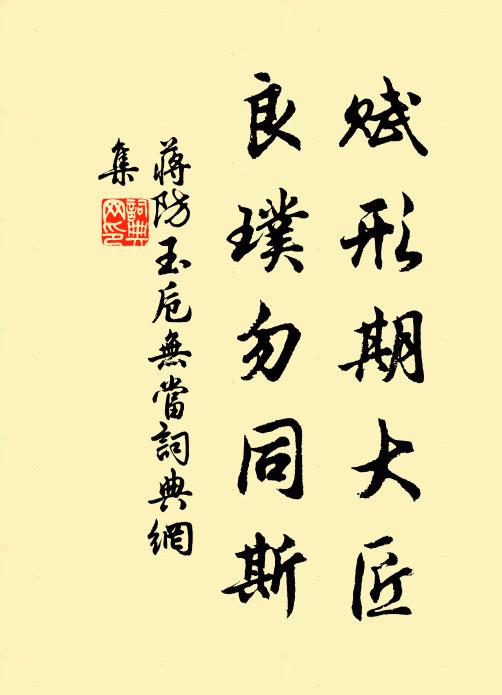 赋形期大匠
良璞勿同斯
蒋防玉卮無當詞典網
集
詞典
网印